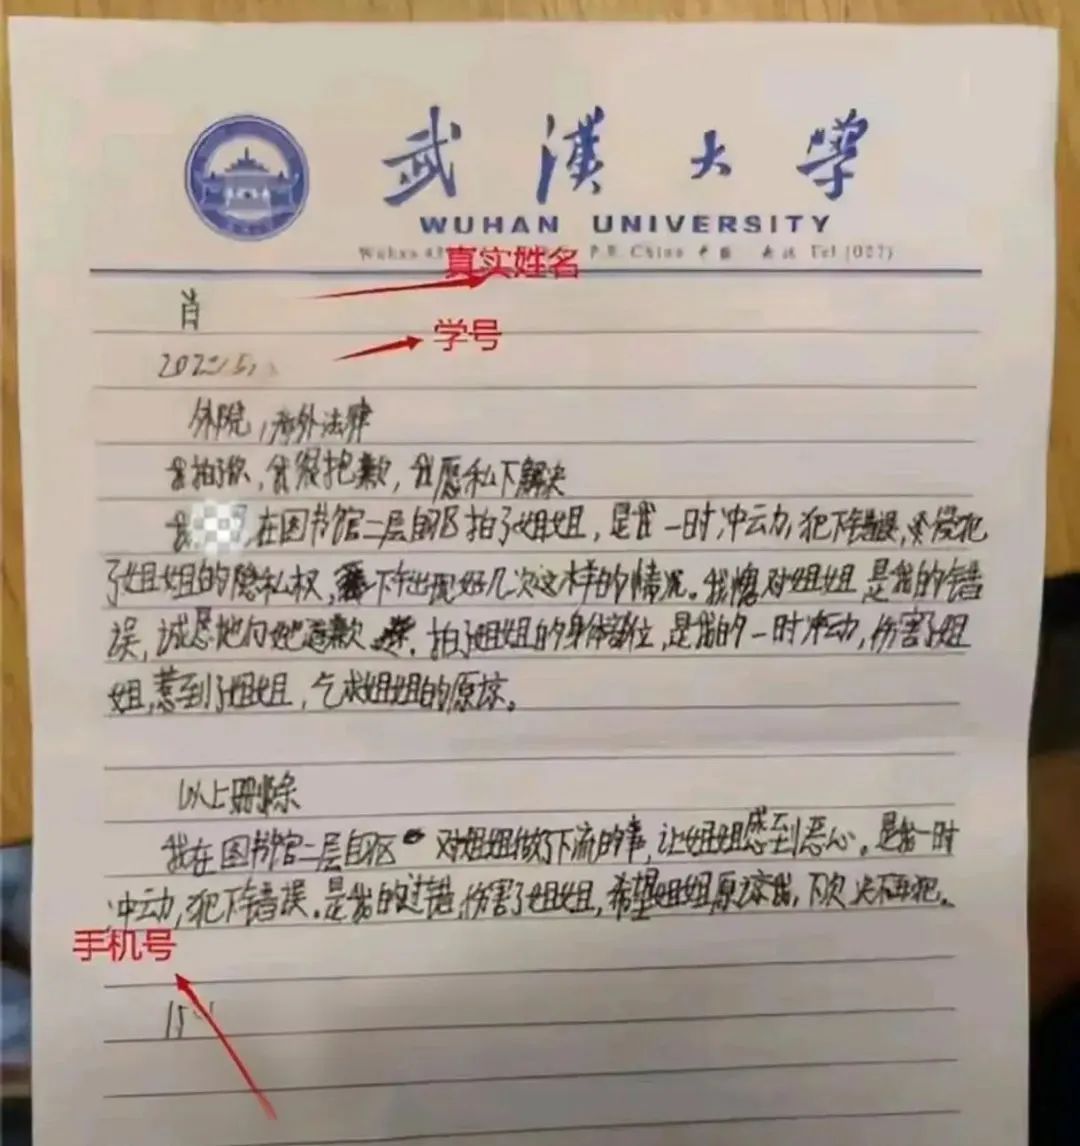 武漢大學
WUHAN UNIVERSITY
Wuhan 43 P.R. China 中国 Tel (027)
真实姓名
肖
学号
202
外院，涉外法律
我拍了你，我很抱歉，我愿私下解决
我 ，在图书馆二层自习区拍了姐姐，是我一时冲动，犯下错误，侵犯
了姐姐的隐私权，下午出现好几次这样的情况。我愧对姐姐是我的错
误，诚恳地向她道歉，拍了姐姐的身体部位，是我的一时冲动，伤害了姐
姐，惹到了姐姐，乞求姐姐的原谅。
以上删除
我在图书馆二层自习区 对姐姐做了下流的事，让姐姐感到恶心。是我一时
冲动，犯下错误。是我的过错，伤害了姐姐，希望姐姐原谅我，下次决不再犯。
手机号
15